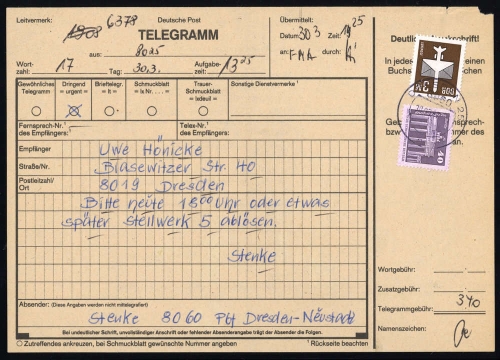 Leitvermerk: 1903 6378 Deutsche Post
TELEGRAMM
aus: 8025
Wortzahl: 17 Tag: 30.3. Aufgabezeit: 13 25
Übermittelt:
Datum: 30 3 Zeit: 1925
an: durch:
Gewöhnliches Telegramm
Dringend = urgent =
Brieftelegr. = lt =
Schmuckblatt = lx Nr. ... =
Trauer-Schmuckblatt = lxdeuil =
Sonstige Dienstvermerke ¹
Fernsprech-Nr. ¹ des Empfängers:
Telex-Nr. ¹ des Empfängers:
Empfänger Uwe Hönicke
Straße/Nr. Blasewitzer Str. 40
Postleitzahl/Ort 8019 Dresden
Bitte heute 18 00 Uhr oder etwas
später Stellwerk 5 ablösen.
Stenke
Absender: (Diese Angaben werden nicht mittelegrafiert)
Stenke 8060 Pbf Dresden-Neustadt
Bei undeutlicher Schrift, unvollständiger Anschrift oder fehlender Absenderangabe trägt der Absender die Folgen.
Zutreffendes ankreuzen, bei Schmuckblatt gewünschte Nummer angeben
¹ Rückseite beachten
Deutliche
In jedes
Buchs
DDR
40
Wortgebühr:
Zusatzgebühr:
Telegrammgebühr: 340
Namenszeichen: